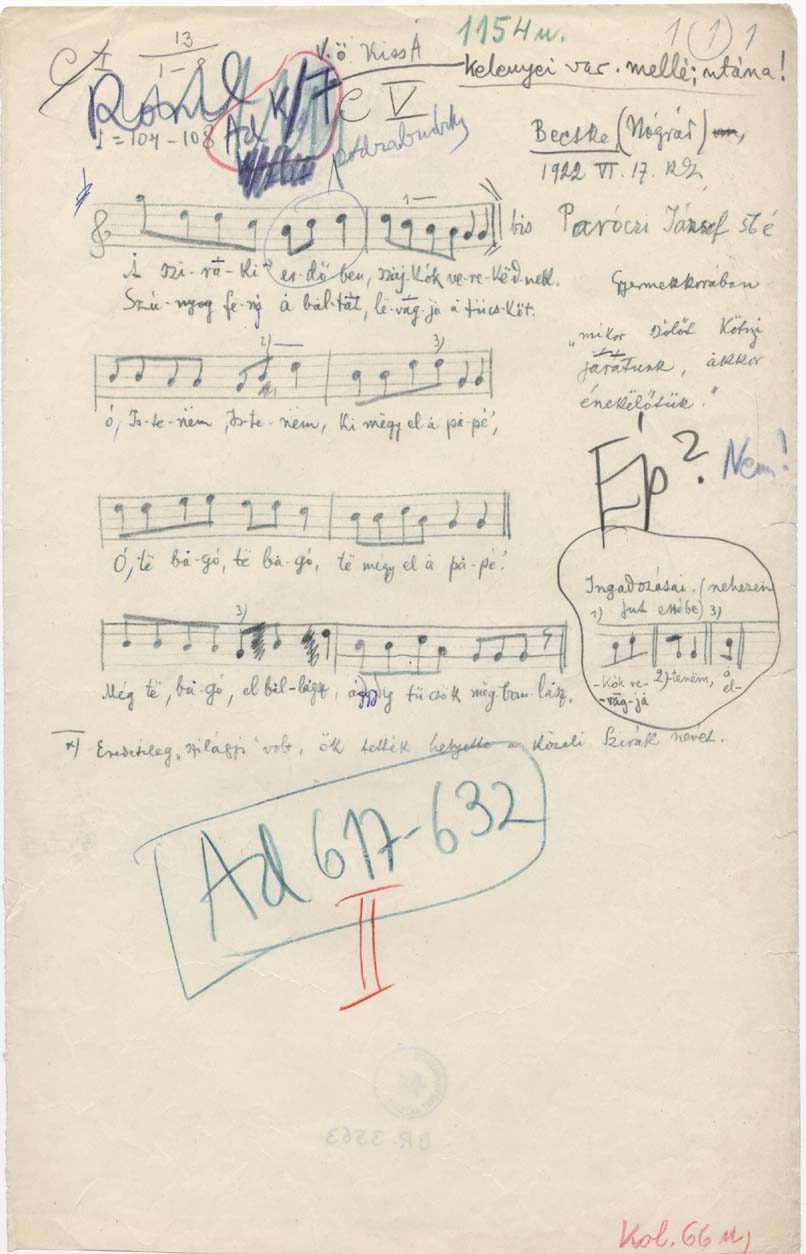 1154 u.
1 (1) 1
13
1–8
V.ö Kiss Á
kelenyei var. mellé; utána!
Ad K/7
C V
♩ = 104–108
Becske (Nógrád)
1922 VI. 17.
bis
Paróczi József 57é
Á szi-rá-ki* er-dő ben, száj-kók ve-re-këd-nek.
Szú-nyog fe-ni á bál-tát, lë-vág-ja á tücs-köt.
Gyermekkorában
„mikor szőlőt kötözni
jártunk, ákkor
énekëltük."
2)
3)
Ó, Is-te-nëm, Is-te-nëm, Ki mëgy el á pá-pé',
Ép? Nem!
Ó, të bá-gó, të bá-gó, të mégy el á pá-pé'.
Ingadozásai. (nehezen
jut eszébe)
1) 3)
3)
-kók ve- 2) -teném, á
-vág-já el-
Még të, bá-gó, el bál-lágsz, ággyig tücsök mëg-ban-lász.
*) Eredetileg „szilágyi" volt, ők tették helyette a közeli Szirák nevét.
Ad 617–632
II
BR. 3563
Kol. 66 u,